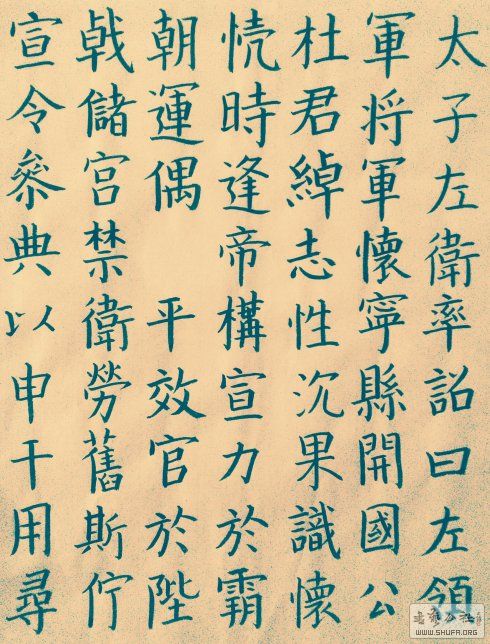 太子左衛率詔曰左領
軍将軍懷寧縣開國公
杜君綽志性沉果識懷
時逢帝構宣力於霸
朝運偶 平效官於陛
戟儲宮禁衛勞舊斯佇
宣令叅典以申干用尋
WWW.SHUFA.ORG